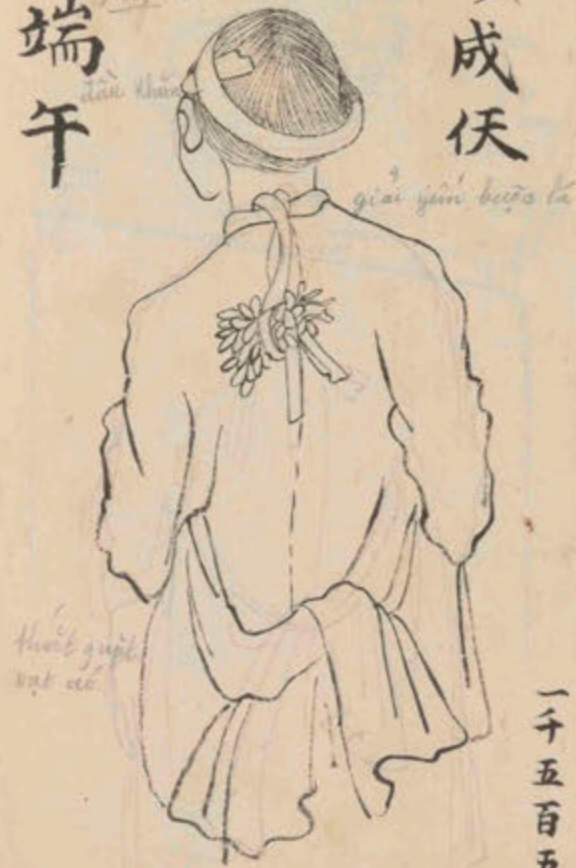 成仸
端午
đầu khăn
giải yếm buộc lá
thắt quặt
vạt áo
一千五百五